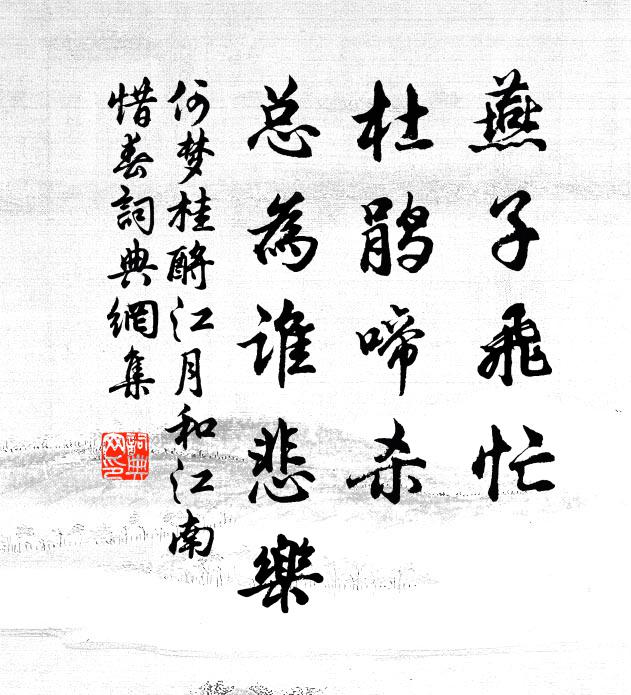 燕子飛忙
杜鹃啼杀
总為谁悲樂
何梦桂酹江月和江南
惜春詞典網集
詞典
网印